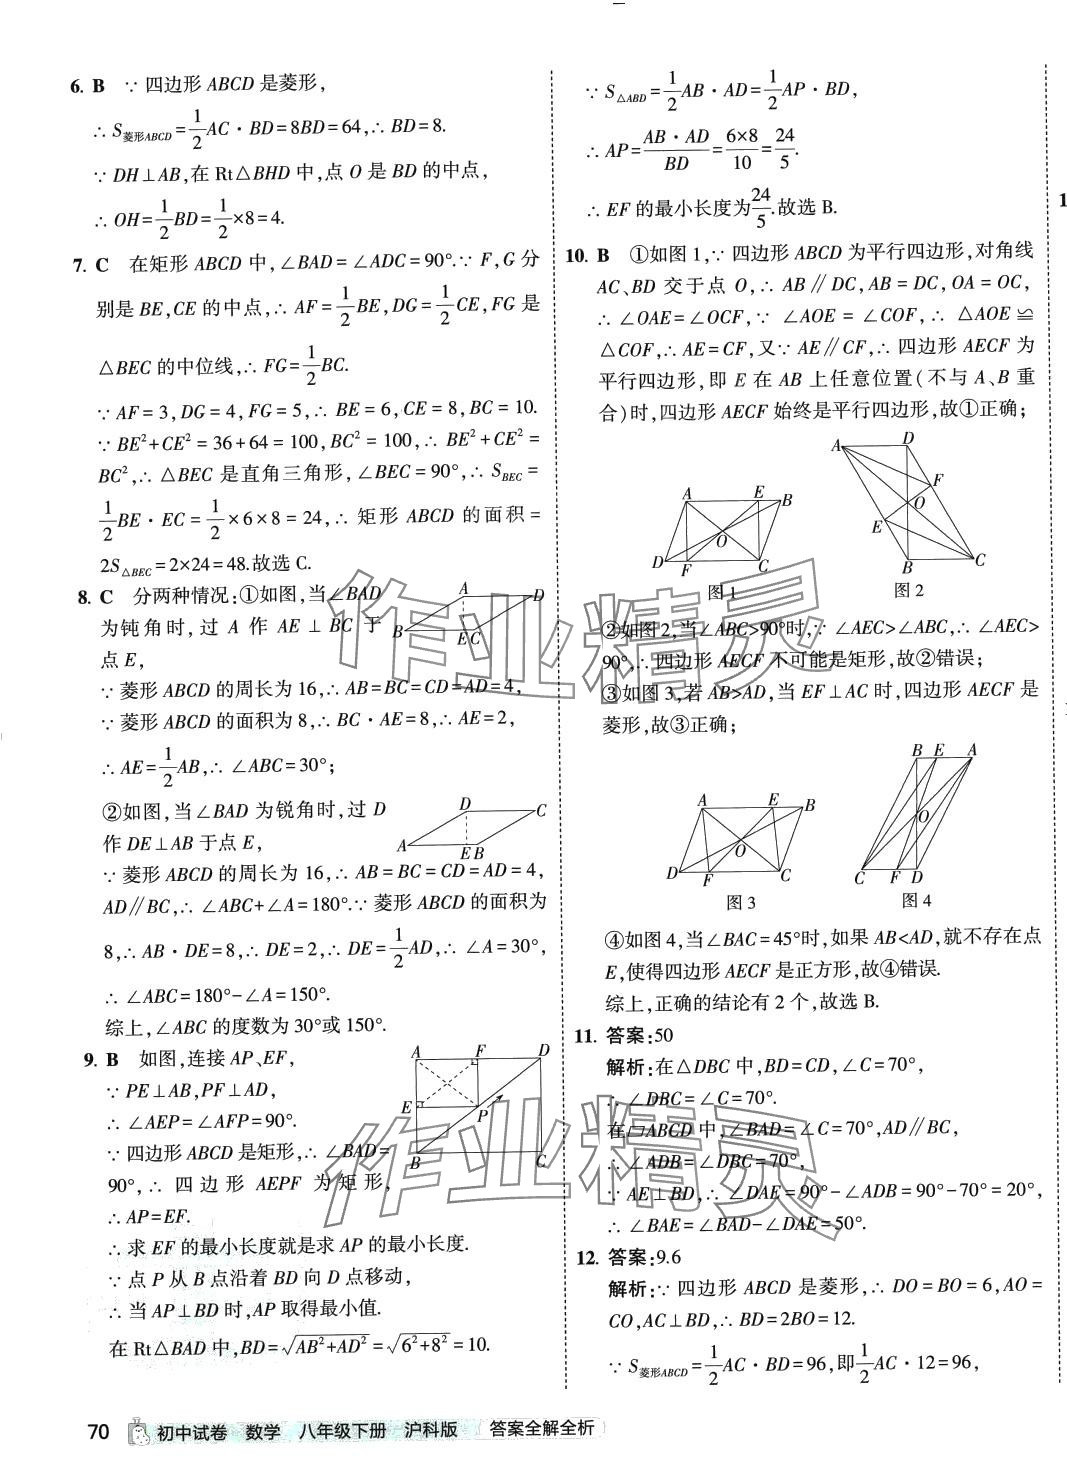 6. B ∵ 四边形 ABCD 是菱形，
∴ S菱形ABCD=1/2AC·BD=8BD=64,∴ BD=8.
∵ DH⊥AB,在 Rt△BHD 中,点 O 是 BD 的中点，
∴ OH=1/2BD=1/2×8=4.
7. C 在矩形 ABCD 中,∠BAD=∠ADC=90°.∵ F,G 分
别是 BE,CE 的中点,∴ AF=1/2BE,DG=1/2CE,FG 是
△BEC 的中位线,∴ FG=1/2BC.
∵ AF=3,DG=4,FG=5,∴ BE=6,CE=8,BC=10.
∵ BE²+CE²=36+64=100,BC²=100,∴ BE²+CE²=
BC²,∴ △BEC 是直角三角形,∠BEC=90°,∴ S BEC=
1/2BE·EC=1/2×6×8=24,∴ 矩形 ABCD 的面积=
2S△BEC=2×24=48.故选 C.
8. C 分两种情况:①如图,当∠BAD
为钝角时,过 A 作 AE⊥BC 于
点 E,
A D
B E C
∵ 菱形 ABCD 的周长为 16,∴ AB=BC=CD=AD=4,
∵ 菱形 ABCD 的面积为 8,∴ BC·AE=8,∴ AE=2,
∴ AE=1/2AB,∴ ∠ABC=30°;
②如图,当∠BAD 为锐角时,过 D
作 DE⊥AB 于点 E,
D C
A E B
∵ 菱形 ABCD 的周长为 16,∴ AB=BC=CD=AD=4,
AD∥BC,∴ ∠ABC+∠A=180°.∵ 菱形 ABCD 的面积为
8,∴ AB·DE=8,∴ DE=2,∴ DE=1/2AD,∴ ∠A=30°,
∴ ∠ABC=180°-∠A=150°.
综上,∠ABC 的度数为 30°或 150°.
9. B 如图,连接 AP、EF,
∵ PE⊥AB,PF⊥AD,
∴ ∠AEP=∠AFP=90°.
∵ 四边形 ABCD 是矩形,∴ ∠BAD=
90°,∴ 四边形 AEPF 为矩形,
∴ AP=EF.
A F D
E P
B C
∴ 求 EF 的最小长度就是求 AP 的最小长度.
∵ 点 P 从 B 点沿着 BD 向 D 点移动,
∴ 当 AP⊥BD 时,AP 取得最小值.
在 Rt△BAD 中,BD=√(AB²+AD²)=√(6²+8²)=10.
∵ S△ABD=1/2AB·AD=1/2AP·BD,
∴ AP=AB·AD/BD=6×8/10=24/5.
∴ EF 的最小长度为24/5.故选 B.
10. B ①如图 1,∵ 四边形 ABCD 为平行四边形,对角线
AC、BD 交于点 O,∴ AB∥DC,AB=DC,OA=OC,
∴ ∠OAE=∠OCF,∵ ∠AOE=∠COF,∴ △AOE≌
△COF,∴ AE=CF,又∵ AE∥CF,∴ 四边形 AECF 为
平行四边形,即 E 在 AB 上任意位置(不与 A、B 重
合)时,四边形 AECF 始终是平行四边形,故①正确;
A E B
O
D F C
图 1
A D
F
O
E
B C
图 2
②如图 2,当∠ABC>90°时,∵ ∠AEC>∠ABC,∴ ∠AEC>
90°,∴ 四边形 AECF 不可能是矩形,故②错误;
③如图 3,若 AB>AD,当 EF⊥AC 时,四边形 AECF 是
菱形,故③正确;
A E B
O
D F C
图 3
B E A
O
C F D
图 4
④如图 4,当∠BAC=45°时,如果 AB<AD,就不存在点
E,使得四边形 AECF 是正方形,故④错误.
综上,正确的结论有 2 个,故选 B.
11. 答案:50
解析:在△DBC 中,BD=CD,∠C=70°,
∴ ∠DBC=∠C=70°.
在▱ABCD 中,∠BAD=∠C=70°,AD∥BC,
∴ ∠ADB=∠DBC=70°,
∵ AE⊥BD,∴ ∠DAE=90°-∠ADB=90°-70°=20°,
∴ ∠BAE=∠BAD-∠DAE=50°.
12. 答案:9.6
解析:∵ 四边形 ABCD 是菱形,∴ DO=BO=6,AO=
CO,AC⊥BD,∴ BD=2BO=12.
∵ S菱形ABCD=1/2AC·BD=96,即1/2AC·12=96,
作业精灵
作业精灵
70 初中试卷 数学 八年级下册 沪科版 答案全解全析